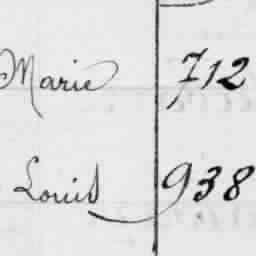 Marie 712
Louis 938